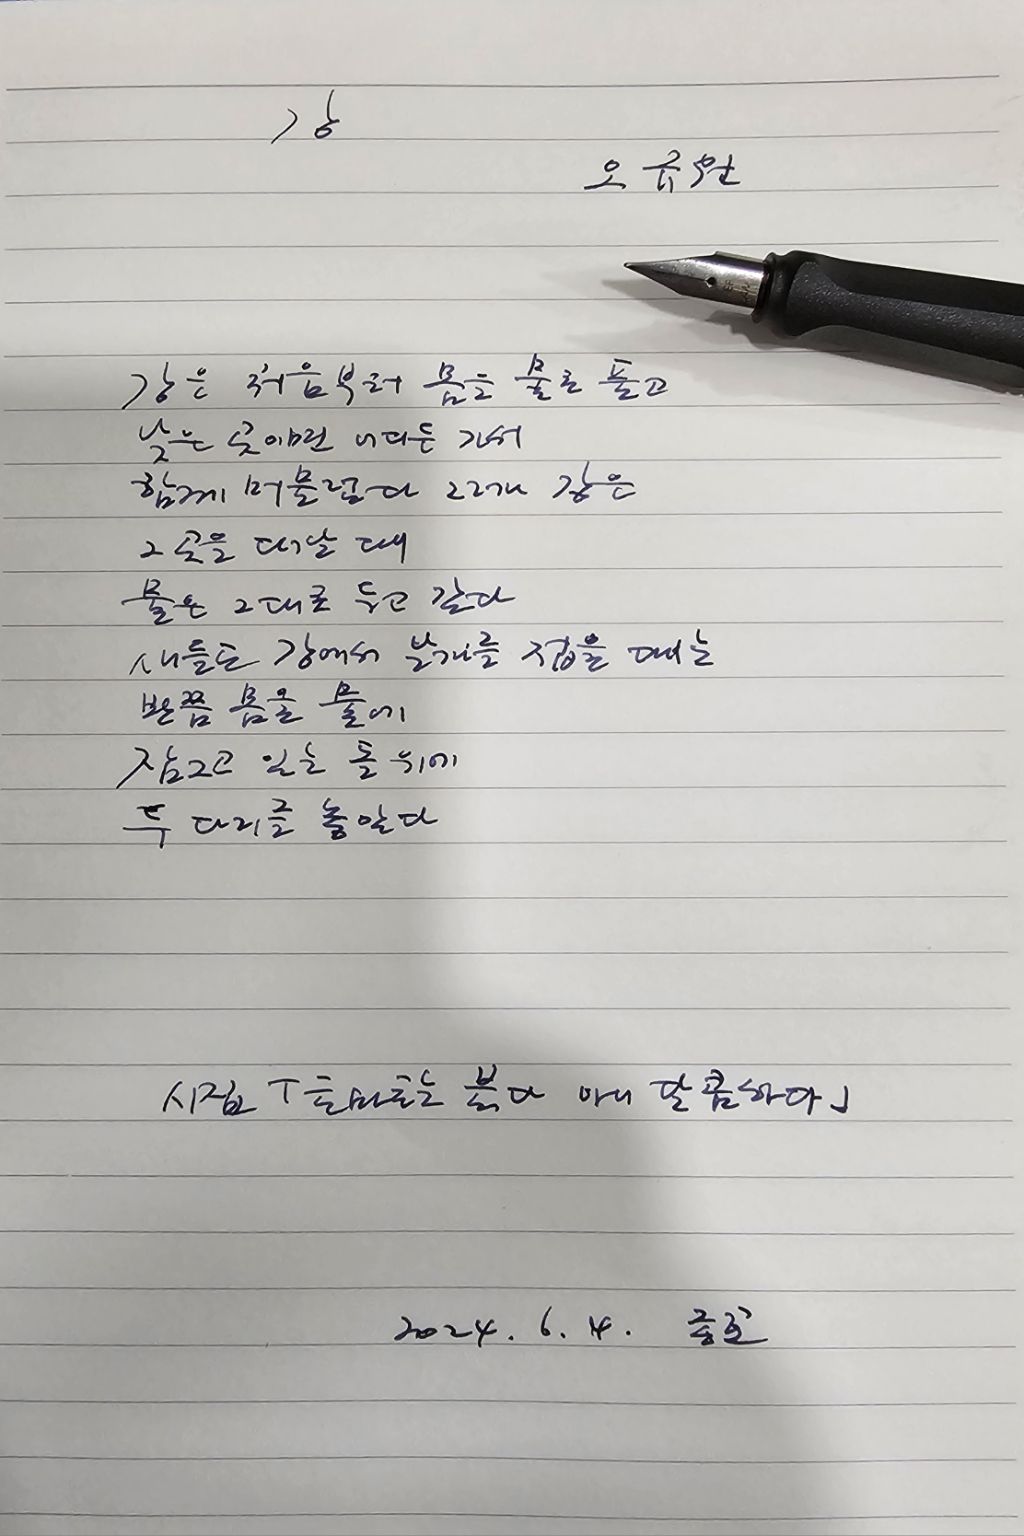 강
오규원
강은 처음부터 몸을 물로 풀고
낮은 곳이면 어디든 가서
함께 머물렀다 그러나 강은
그곳을 떠날 때
물은 그대로 두고 갔다
새들도 강에서 날개를 접을 때는
반쯤 몸을 물에
잠그고 있는 돌 위에
두 다리를 놓았다
시집 「토마토는 붉다 아니 달콤하다」
2024. 6. 4.